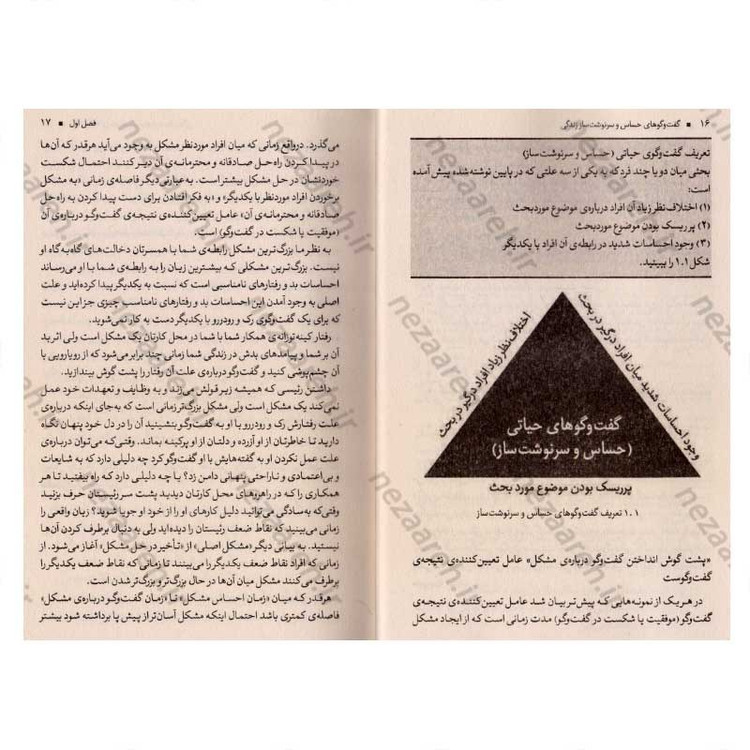 ۱۶ ■ گفت‌وگوهای حساس و سرنوشت‌ساز زندگی
تعریف گفت‌وگوی حیاتی (حساس و سرنوشت‌ساز)
بحثی میان دو یا چند فرد که به یکی از سه علتی که در پایین نوشته‌شده پیش آمده
است:
(۱) اختلاف‌نظر زیاد آن افراد درباره‌ی موضوع موردبحث
(۲) پرریسک بودن موضوع موردبحث
(۳) وجود احساسات شدید در رابطه‌ی آن افراد با یکدیگر
شکل ۱.۱ را ببینید.
اختلاف‌نظر زیاد افراد درگیر در بحث
وجود احساسات شدید میان افراد درگیر در بحث
گفت‌وگوهای حیاتی
(حساس و سرنوشت‌ساز)
پرریسک بودن موضوع مورد بحث
۱.۱ تعریف گفت‌وگوهای حساس و سرنوشت‌ساز
«پشت گوش انداختن گفت‌وگو درباره‌ی مشکل» عامل تعیین‌کننده‌ی نتیجه‌ی
گفت‌وگوست
در هر یک از نمونه‌هایی که پیش‌تر بیان شد عامل تعیین‌کننده‌ی نتیجه‌ی
گفت‌وگو (موفقیت یا شکست در گفت‌وگو) مدت زمانی است که از ایجاد مشکل
فصل اول ■ ۱۷
می‌گذرد. درواقع زمانی که میان افراد موردنظر مشکل به وجود می‌آید هرقدر که آن‌ها
در پیدا کردن راه‌حل صادقانه و محترمانه‌ی آن دیر کنند احتمال شکست
خوردنشان در حل مشکل بیشتر است. به عبارتی دیگر فاصله‌ی زمانی «به مشکل
برخوردن افراد موردنظر با یکدیگر» و «به فکر افتادن برای دست پیدا کردن به راه‌حل
صادقانه و محترمانه‌ی آن» عامل تعیین‌کننده‌ی نتیجه‌ی گفت‌وگو درباره‌ی آن
(موفقیت یا شکست در گفت‌وگو) است.
به نظر ما بزرگ‌ترین مشکل رابطه‌ی شما با همسرتان دخالت‌های گاه‌به‌گاه او
نیست. بزرگ‌ترین مشکلی که بیشترین زیان را به رابطه‌ی شما با او می‌رساند
احساسات بد و رفتارهای نامناسبی است که نسبت به یکدیگر پیدا کرده‌اید و علت
اصلی به وجود آمدن این احساسات بد و رفتارهای نامناسب چیزی جز این نیست
که برای یک گفت‌وگوی رک و رودررو با یکدیگر دست به کار نمی‌شوید.
رفتار کینه‌توزانه‌ی همکار شما با شما در محل کارتان یک مشکل است ولی اثر بد
آن بر شما و پیامدهای بدش در زندگی شما زمانی چند برابر می‌شود که از رویارویی با
آن چشم‌پوشی کنید و گفت‌وگو درباره‌ی علت آن رفتار را پشت گوش بیندازید.
داشتن رئیسی که همیشه زیر قولش می‌زند و به وظایف و تعهدات خود عمل
نمی‌کند یک مشکل است ولی مشکل بزرگ‌تر زمانی است که به‌جای اینکه درباره‌ی
علت رفتارش رک و رودررو با او به گفت‌وگو بنشینید آن را در دل خود پنهان نگاه
دارید تا خاطرتان از او آزرده و دلتان از او پرکینه بماند. وقتی‌که می‌توان درباره‌ی
علت عمل نکردن او به گفته‌هایش با او گفت‌وگو کرد چه دلیلی دارد که به شایعات
و بی‌اعتمادی و ناراحتی پنهانی دامن زد؟ یا چه دلیلی دارد که راه بیفتید تا هر
همکاری را که در راهروهای محل کارتان دیدید پشت سر رئیستان حرف بزنید
وقتی‌که به‌سادگی می‌توانید دلیل کارهای او را از خود او جویا شوید؟ زیان واقعی را
زمانی می‌بینید که نقاط ضعف رئیستان را دیده‌اید ولی به دنبال برطرف کردن آن‌ها
نیستید. به بیانی دیگر «مشکل اصلی» از «تأخیر در حل مشکل» آغاز می‌شود. از
زمانی که افراد نقاط ضعف یکدیگر را می‌بینند تا زمانی که نقاط ضعف یکدیگر را
برطرف می‌کنند مشکل میان آن‌ها در حال بزرگ‌تر و بزرگ‌تر شدن است.
هرقدر که میان «زمان احساس مشکل» تا «زمان گفت‌وگو درباره‌ی مشکل»
فاصله‌ی کمتری باشد احتمال اینکه مشکل آسان‌تر از پیش پا برداشته شود بیشتر
nezaareh.ir